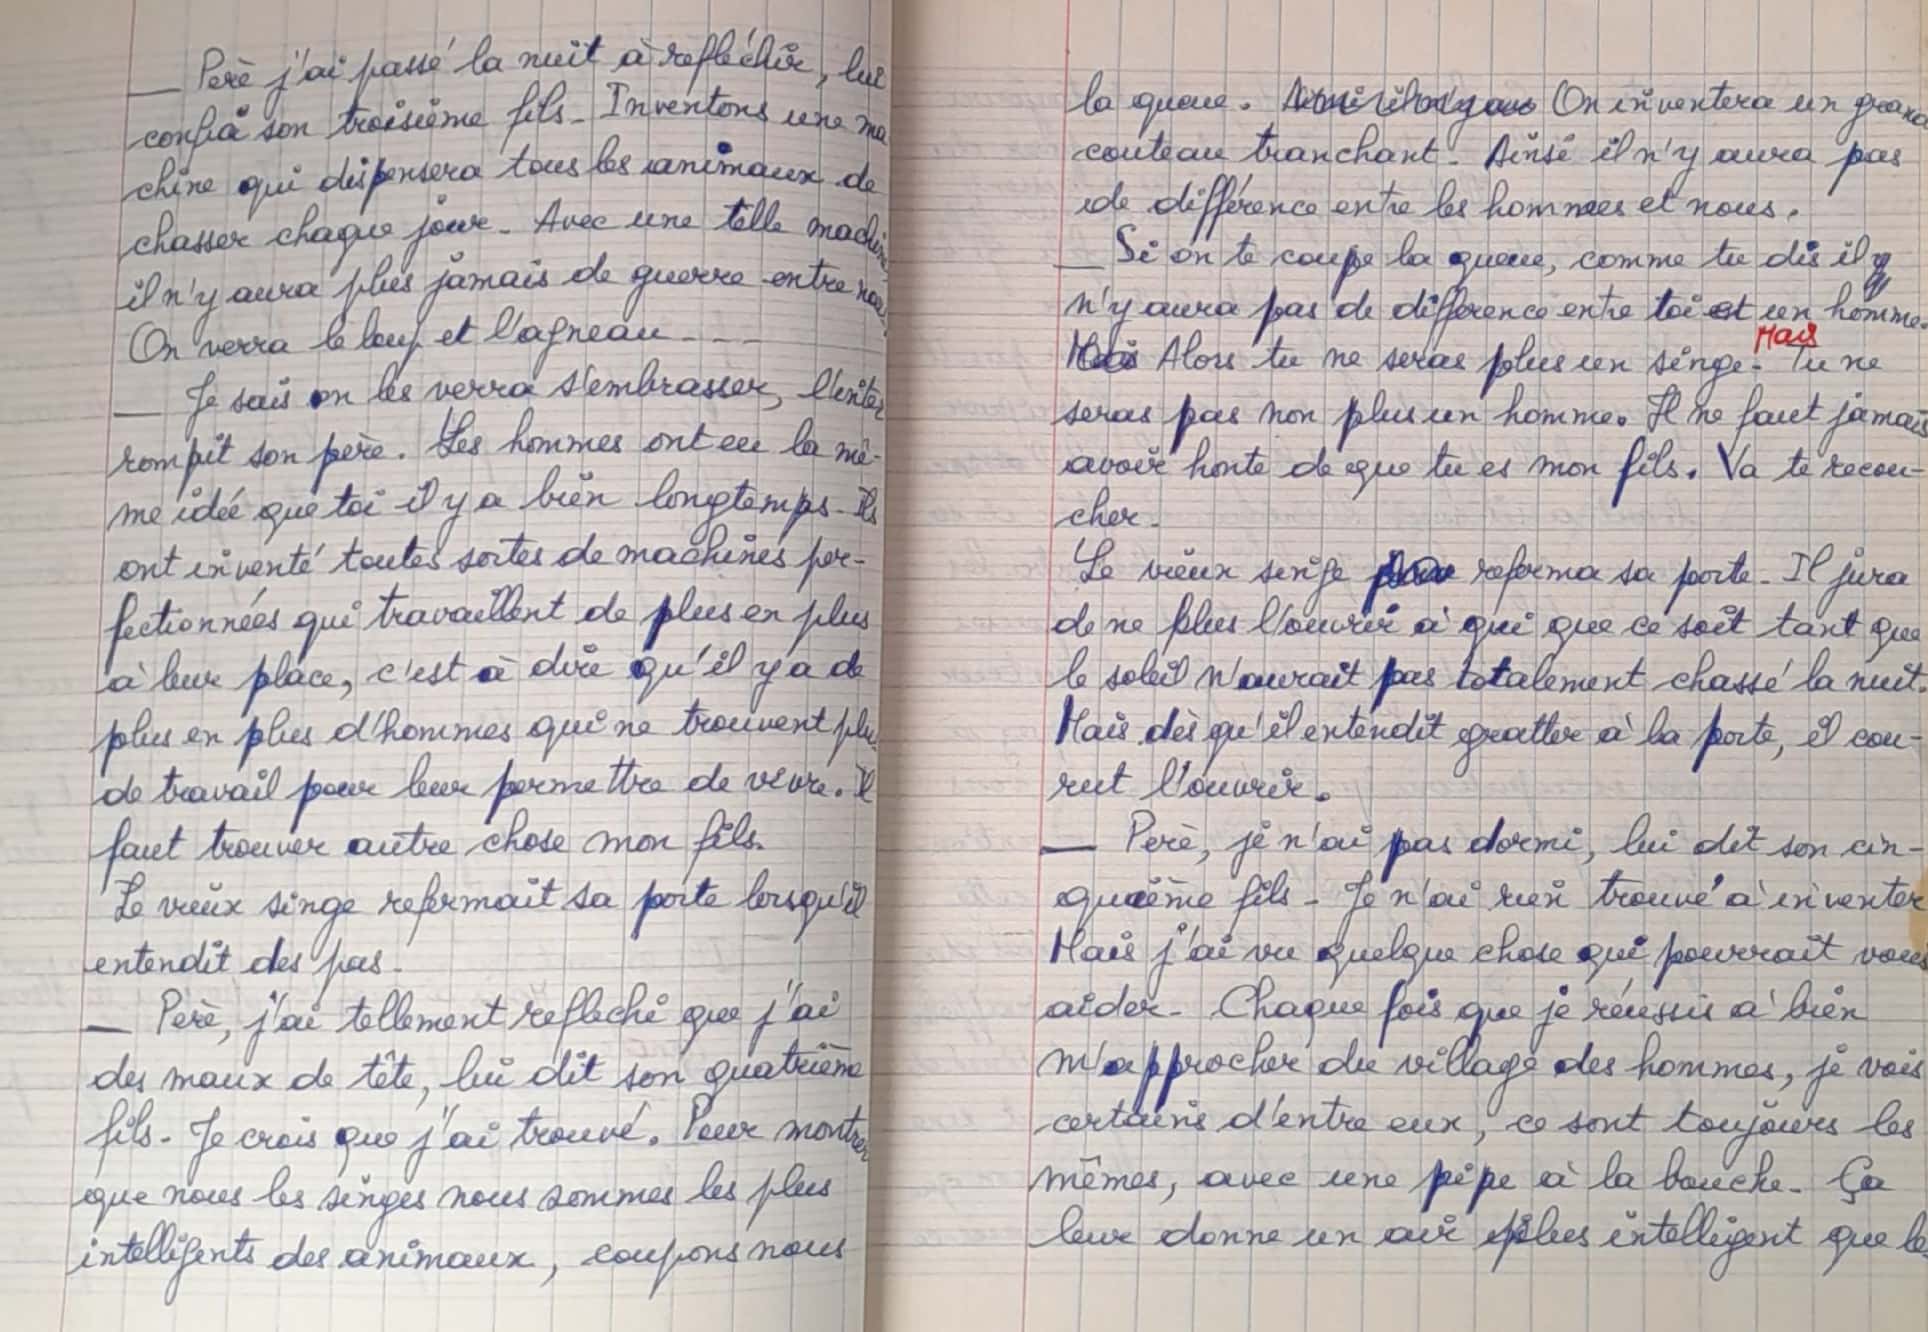 — Père j'ai passé la nuit à refléchir, lui
confia son troisième fils. Inventons une ma
chine qui dispensera tous les animaux de
chasser chaque jour. Avec une telle machine
il n'y aura plus jamais de guerre entre nous.
On verra le loup et l'agneau ----
— Je sais on les verra s'embrasser, l'inter
rompit son père. Les hommes ont eu la mê-
me idée que toi il y a bien longtemps. Ils
ont inventé toutes sortes de machines per-
fectionnées qui travaillent de plus en plus
à leur place, c'est à dire qu'il y a de
plus en plus d'hommes qui ne trouvent plus
de travail pour leur permettre de vivre. Il
faut trouver autre chose mon fils.
Le vieux singe refermait sa porte lorsqu'il
entendit des pas.
— Père, j'ai tellement refleché que j'ai
des maux de tête, lui dit son quatrième
fils. Je crois que j'ai trouvé. Pour montrer
que nous les singes nous sommes les plus
intelligents des animaux, coupons nous
la queue. On inventera un grand
couteau tranchant. Ainsi il n'y aura pas
de différence entre les hommes et nous.
— Si on te coupe la queue, comme tu dis il y
n'y aura pas de difference entre toi et un homme.
Alors tu ne seras plus un singe. Mais Tu ne
seras pas non plus un homme. Il ne faut jamais
avoir honte de que tu es mon fils. Va te recou-
cher.
Le vieux singe referma sa porte. Il jura
de ne plus l'ouvrir à qui que ce soit tant que
le soleil n'aurait pas totalement chassé la nuit.
Mais dès qu'il entendit gratter à la porte, il cou-
rut l'ouvrir.
— Père, je n'ai pas dormi, lui dit son cin-
quième fils. Je n'ai rien trouvé à inventer
Mais j'ai vu quelque chose qui pourrait vous
aider. Chaque fois que je réussis à bien
m'approcher du village des hommes, je vois
certains d'entre eux, ce sont toujours les
mêmes, avec une pipe à la bouche. Ça
leur donne un air plus intelligent que le